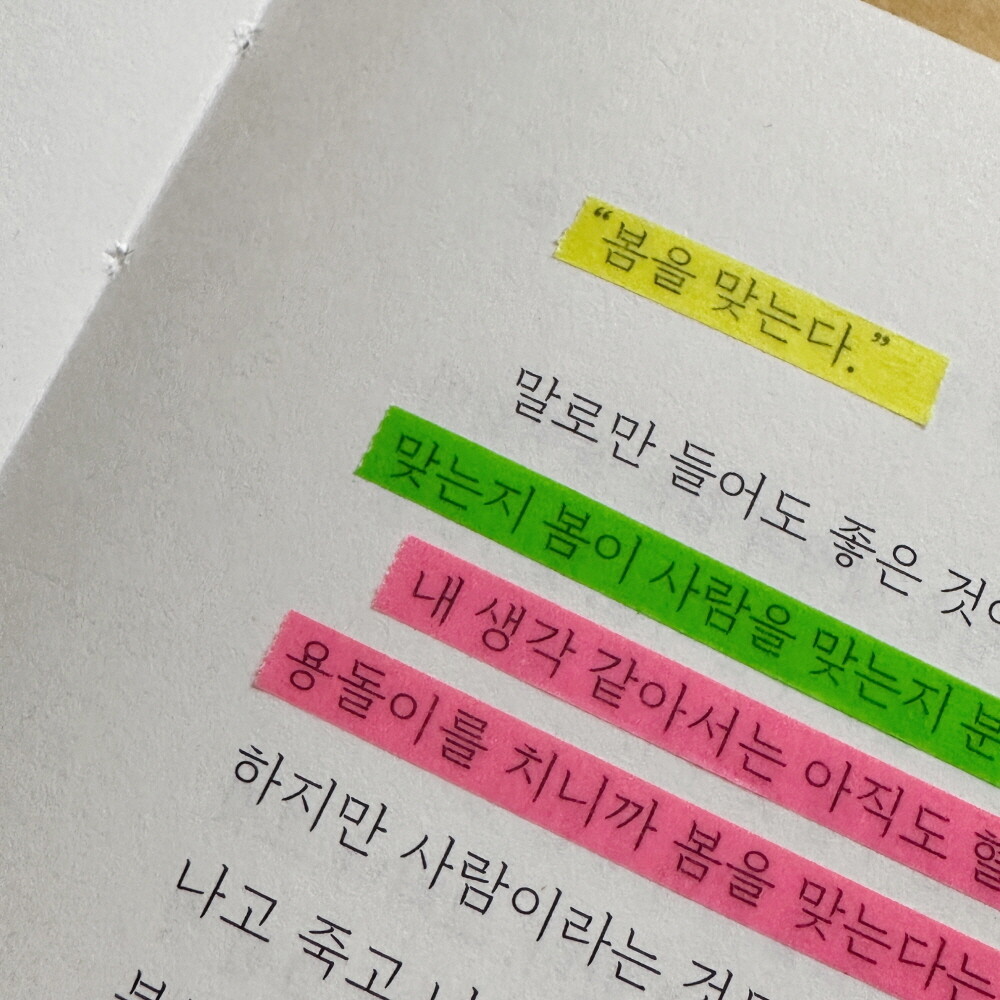 “봄을 맞는다.”
말로만 들어도 좋은
맞는지 봄이 사람을 맞는지
내 생각 같아서는 아직도
용돌이를 치니까 봄을 맞는다는
하지만 사람이라는
나고 죽고